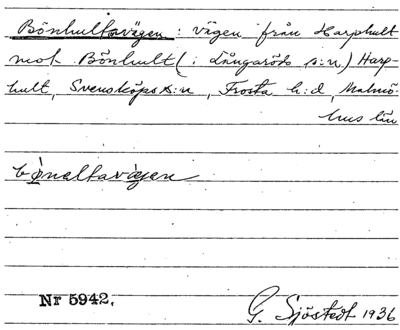 Bönhultavägen: vägen från Harphult
mot Bönhult (i Långaröds s:n) Harp-
hult, Svensköps s:n, Frosta h:d, Malmö-
hus län
bö̀naltavàgen
Nr 5942.
G. Sjöstedt 1936